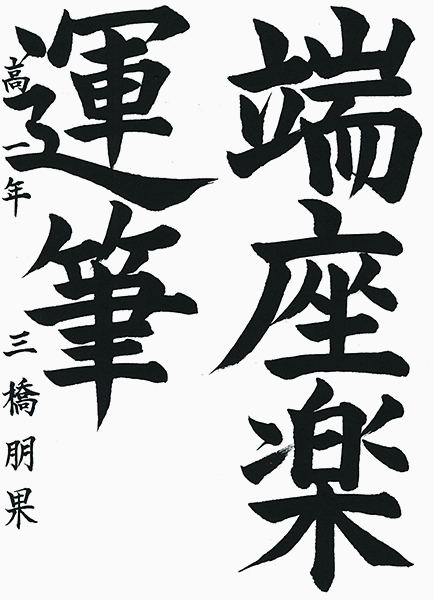 端座楽
運筆
高一年 三橋朋果